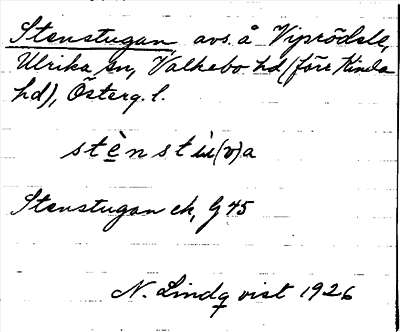 Stenstugan, avs. å Viprödsle,
Ulrika sn, Valkebo hd (förr Kinda
hd), Österg. l.
stènstu̇(v)a
Stenstugan ek, G 45
N. Lindqvist 1926